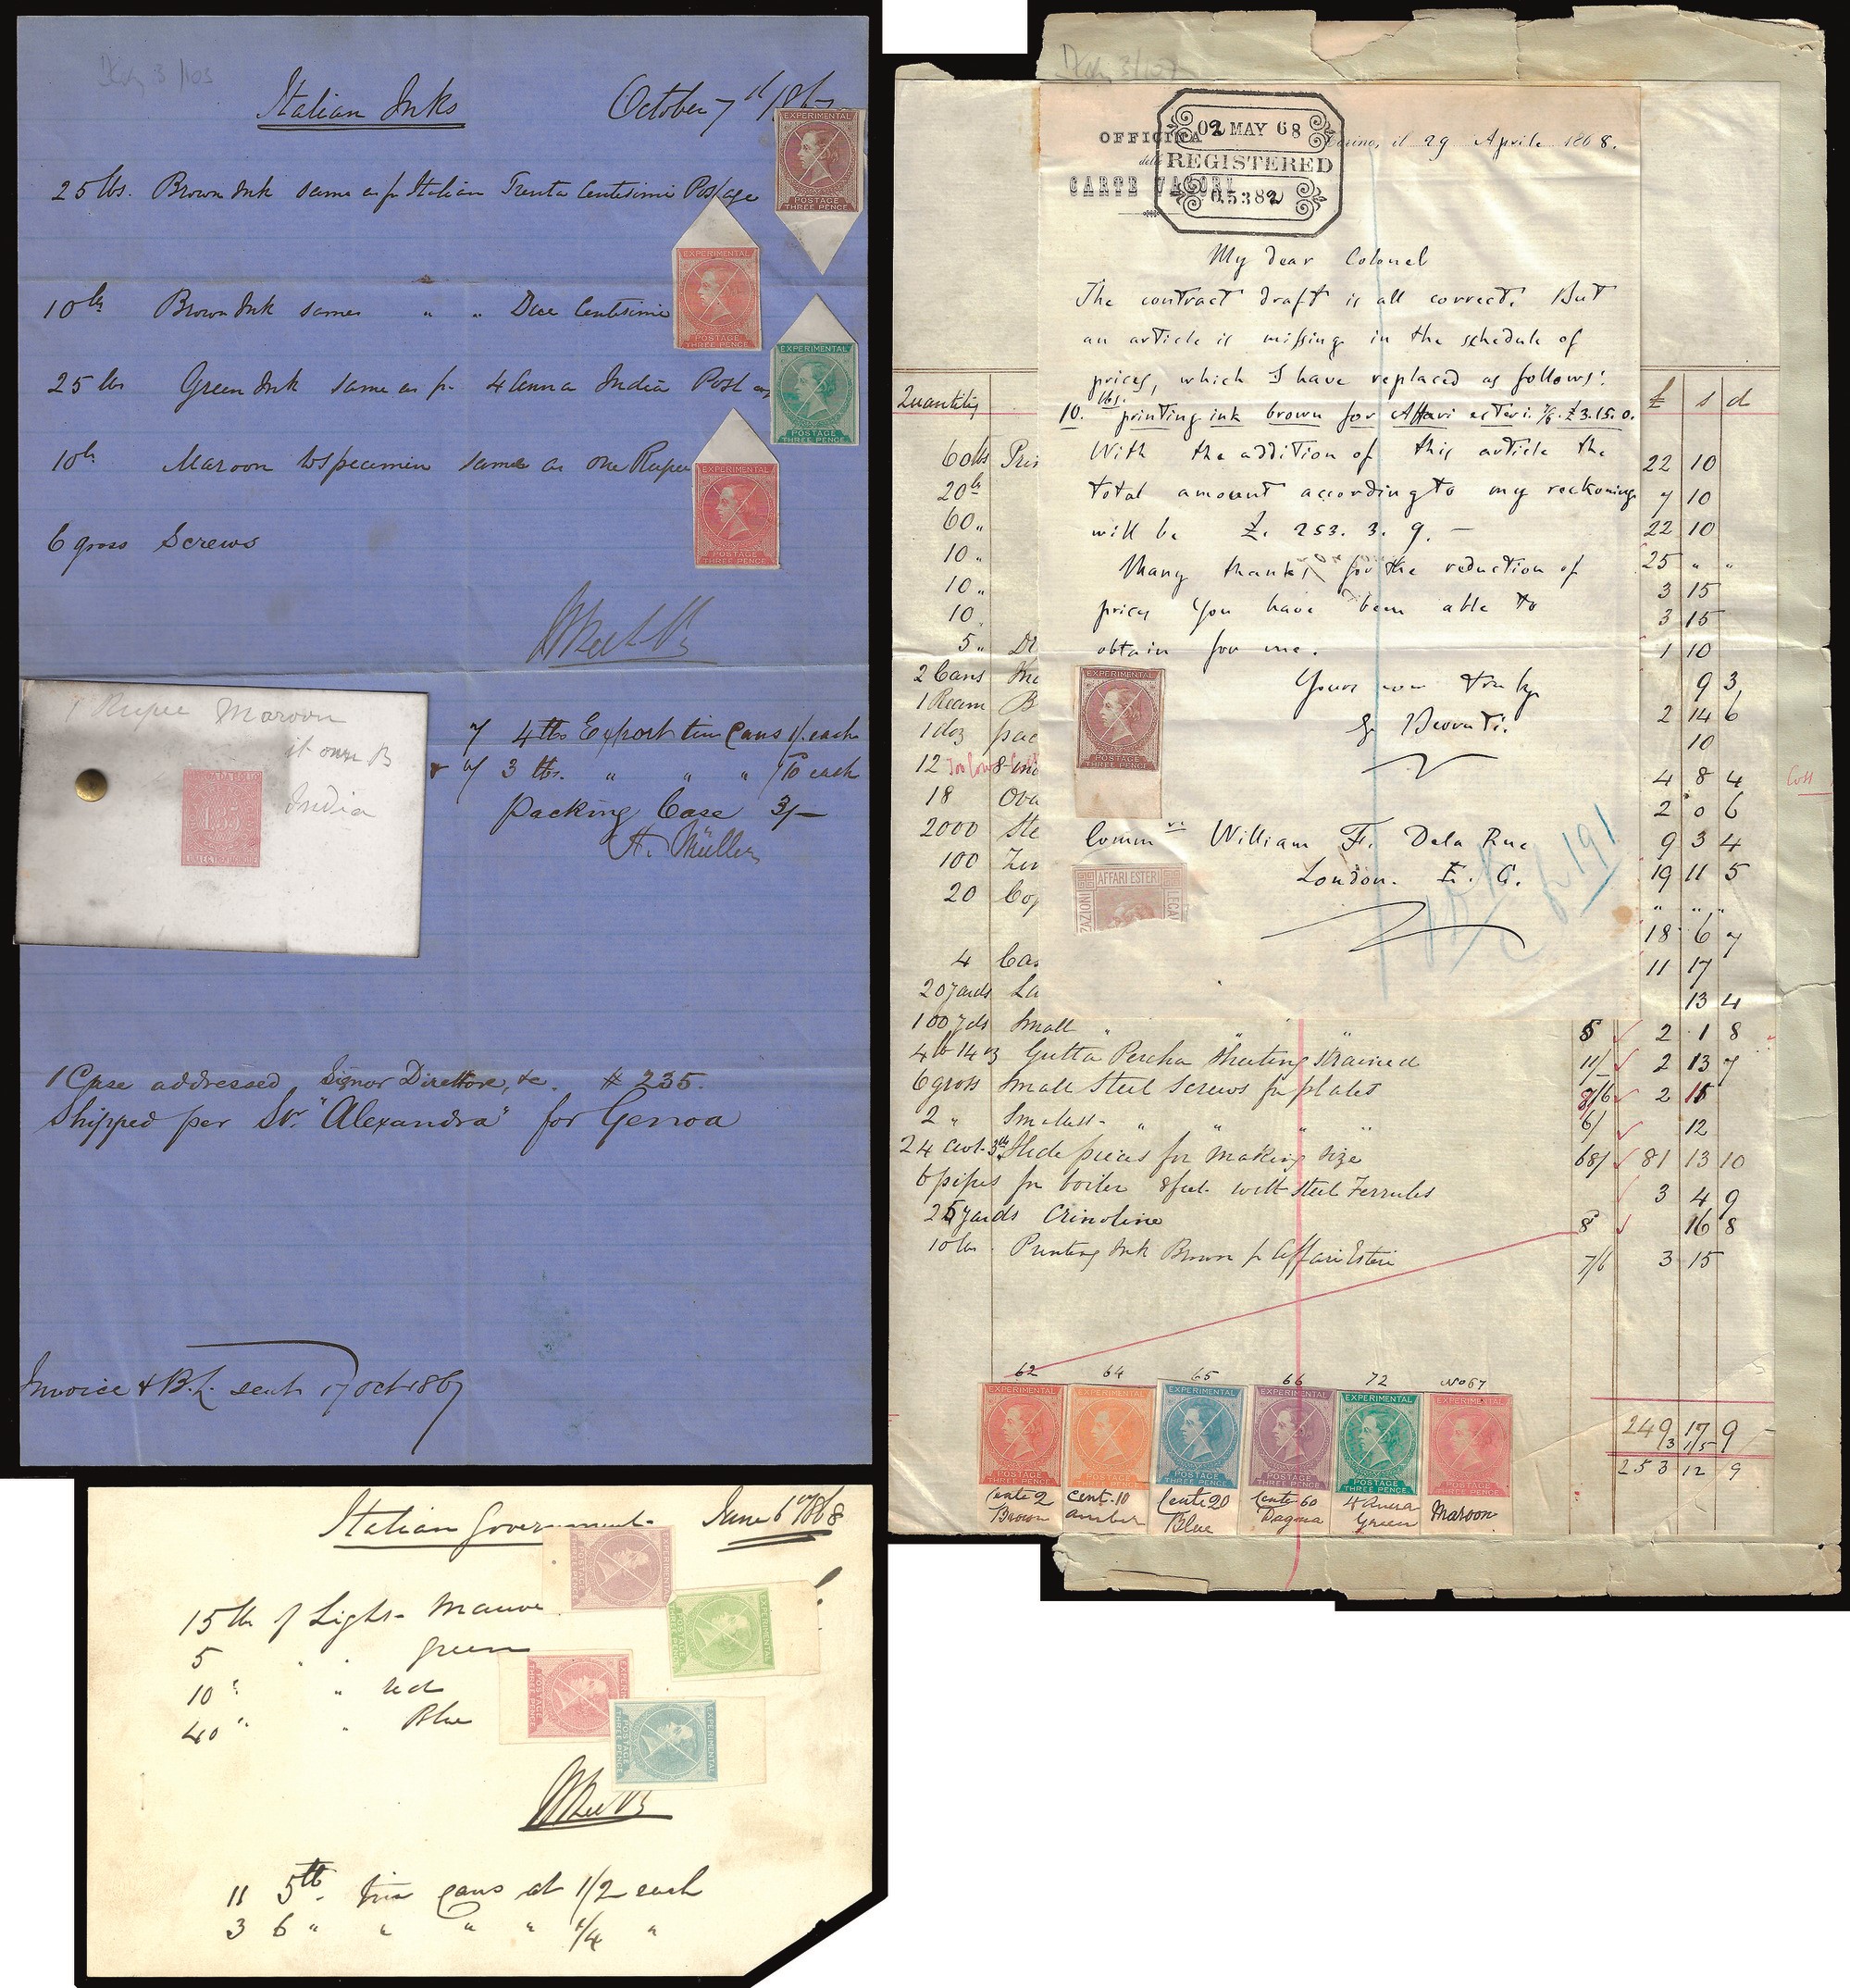 Italian Inks October 7th 1867
EXPERIMENTAL
POSTAGE
THREE PENCE
25 lbs. Brown Ink same as pr Italian Trenta Centisimi Postage
EXPERIMENTAL
POSTAGE
THREE PENCE
10 lbs Brown Ink same " " Due Centisimi
EXPERIMENTAL
POSTAGE
THREE PENCE
25 lbs Green Ink same as pr 4 Anna India Post
10 lbs Maroon to specimen same as one Rupee
EXPERIMENTAL
POSTAGE
THREE PENCE
6 gross Screws
1 Rupee Maroon
India
7 4 lbs Export tin Cans 1/ each
3 lbs. " " " /10 each
Packing Case 3/-
H. Müller
1 Case addressed, Signor Direttore, &c. # 235.
Shipped per Str. "Alexandra" for Genoa
Invoice & B.L. sent 17 Oct 1867
Italian Government June 6th 1868
15 lb of Light Mauve
5 " " green
10 " " red
40 " " Blue
EXPERIMENTAL
POSTAGE
THREE PENCE
EXPERIMENTAL
POSTAGE
THREE PENCE
EXPERIMENTAL
POSTAGE
THREE PENCE
EXPERIMENTAL
POSTAGE
THREE PENCE
11 5 lb. tin cans at 1/2 each
3 6 " " " " 1/4 "
OFFICINA
delle
CARTE VALORI
02 MAY 68
REGISTERED
05382
Torino, il 29 Aprile 1868.
My dear Colonel
The contract draft is all correct. But
an article is missing in the schedule of
prices, which I have replaced as follows:
10. lbs. printing ink brown for Affari esteri. 7/6. £3.15.0.
With the addition of this article the
total amount according to my reckoning
will be £. 253. 3. 9. —
Many thanks for the reduction of
prices you have been able to
obtain for me.
Yours truly
EXPERIMENTAL
POSTAGE
THREE PENCE
William F. Dela Rue
London. E. C.
AFFARI ESTERI
191
Quantity £ s d
60 lbs Prin 22 10
20 lb 7 10
60 " 22 10
10 " 25 " "
10 " 3 15
10 " 3 15
5 " 1 10
2 Cans 9 3
1 Ream B 2 14 6
1 doz pac 10
12 4 8 4
18 Ova 2 0 6
2000 Ste 9 3 4
100 19 11 5
20 Cop " " "
18 6 7
4 Cas 11 17
20 yards La 13 4
100 yds Small " " " 5 2 1 8
4 lb 14 oz Gutta Percha Sheeting Strained 11/- 2 13 7
6 gross Small Steel Screws for plates 2 15
2 " Smallest " " " " 6/ 12
24 cwt. Hide pieces for making size 68/ 81 13 10
6 pipes for boiler 8 feet with Steel Ferrules 3 4 9
25 yards Crinoline 8 16 8
10 lbs. Printing Ink Brown pr Affari Esteri 7/6 3 15
62 64 65 66 72 No 67
EXPERIMENTAL EXPERIMENTAL EXPERIMENTAL EXPERIMENTAL EXPERIMENTAL EXPERIMENTAL
POSTAGE POSTAGE POSTAGE POSTAGE POSTAGE POSTAGE
THREE PENCE THREE PENCE THREE PENCE THREE PENCE THREE PENCE THREE PENCE
249 17 9
3 15
253 12 9
Cents 2 Cent. 10 Cents 20 Cents 60 4 Anna Maroon
Brown amber Blue Green